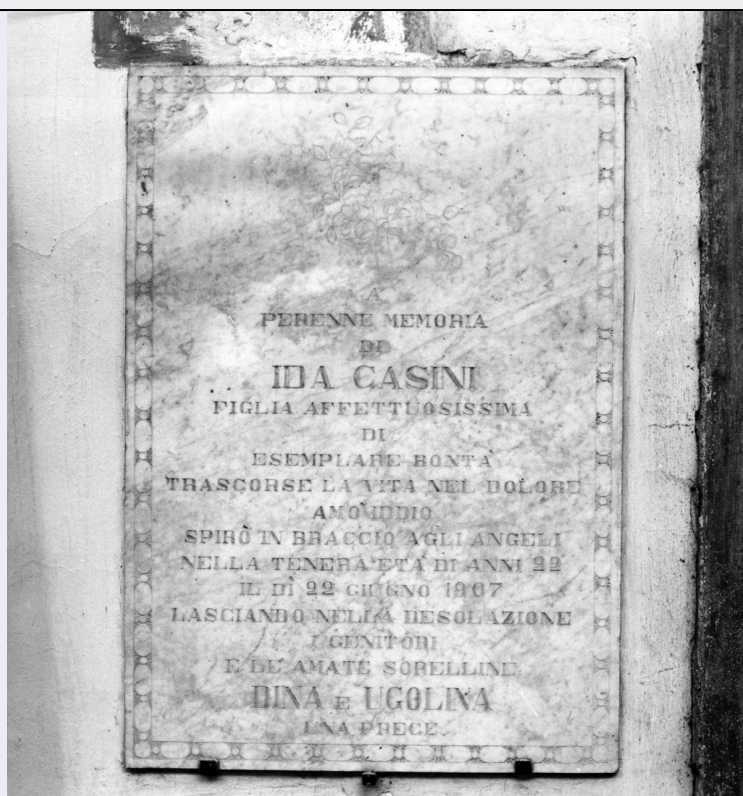 A
PERENNE MEMORIA
DI
IDA CASINI
FIGLIA AFFETTUOSISSIMA
DI
ESEMPLARE BONTÀ
TRASCORSE LA VITA NEL DOLORE
AMÒ IDDIO
SPIRÒ IN BRACCIO AGLI ANGELI
NELLA TENERA ETÀ DI ANNI 22
IL DÌ 22 GIUGNO 1907
LASCIANDO NELLA DESOLAZIONE
I GENITORI
E LE AMATE SORELLINE
DINA E UGOLINA
UNA PRECE.